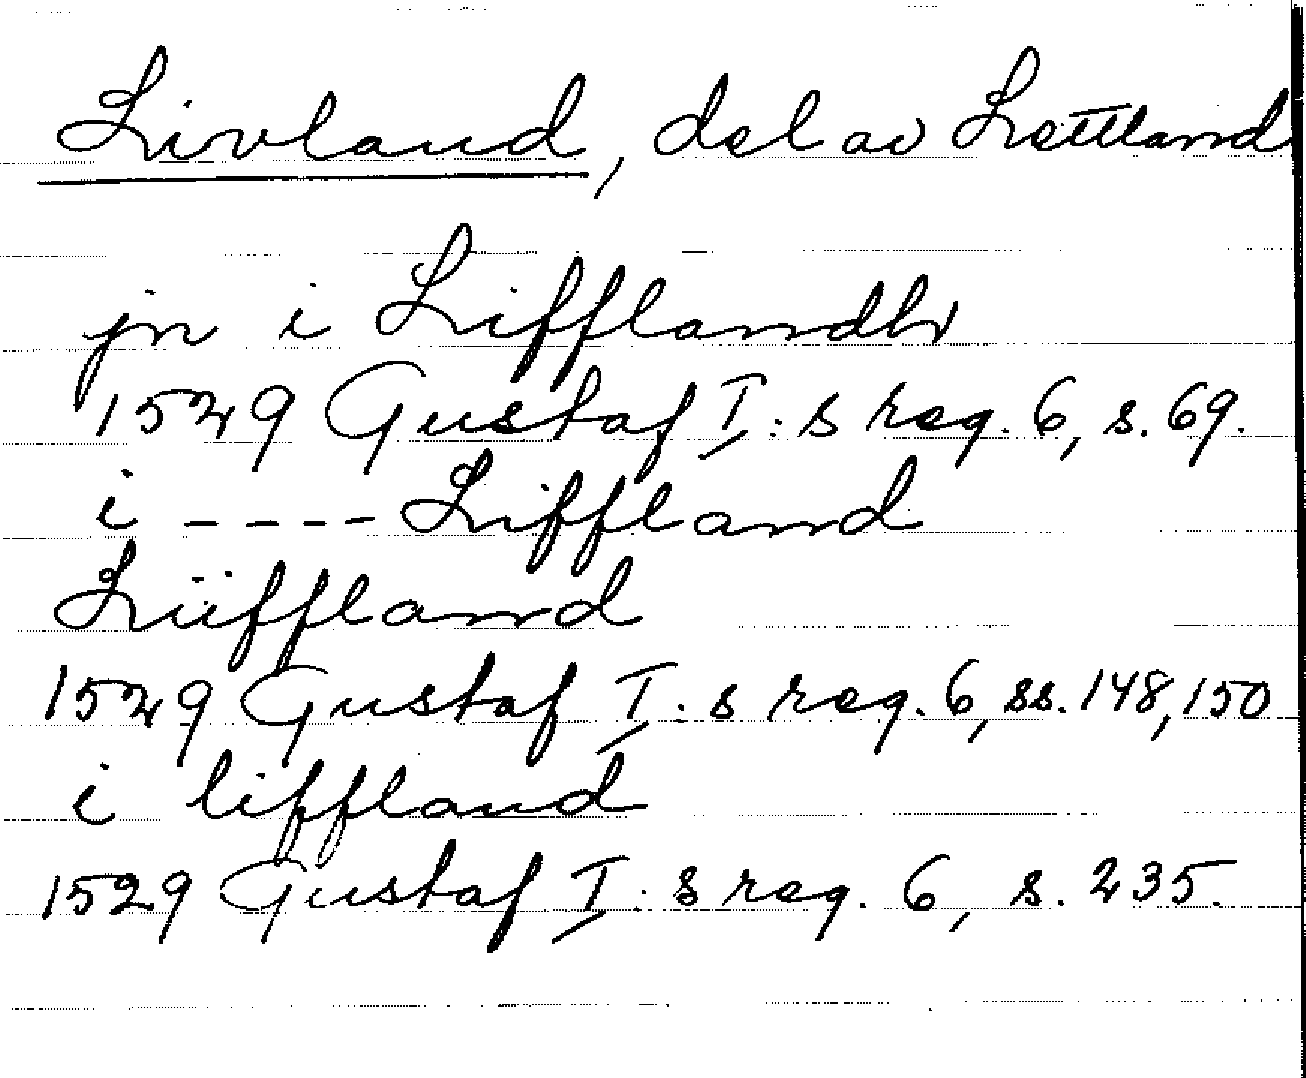 Livland, del av Lettland
jn i Lifflandh
1529 Gustaf I:s reg. 6, s. 69.
i ---- Liffland
Lüffland
1529 Gustaf I:s reg. 6, ss. 148, 150
i liffland
1529 Gustaf I:s reg. 6, s. 235.